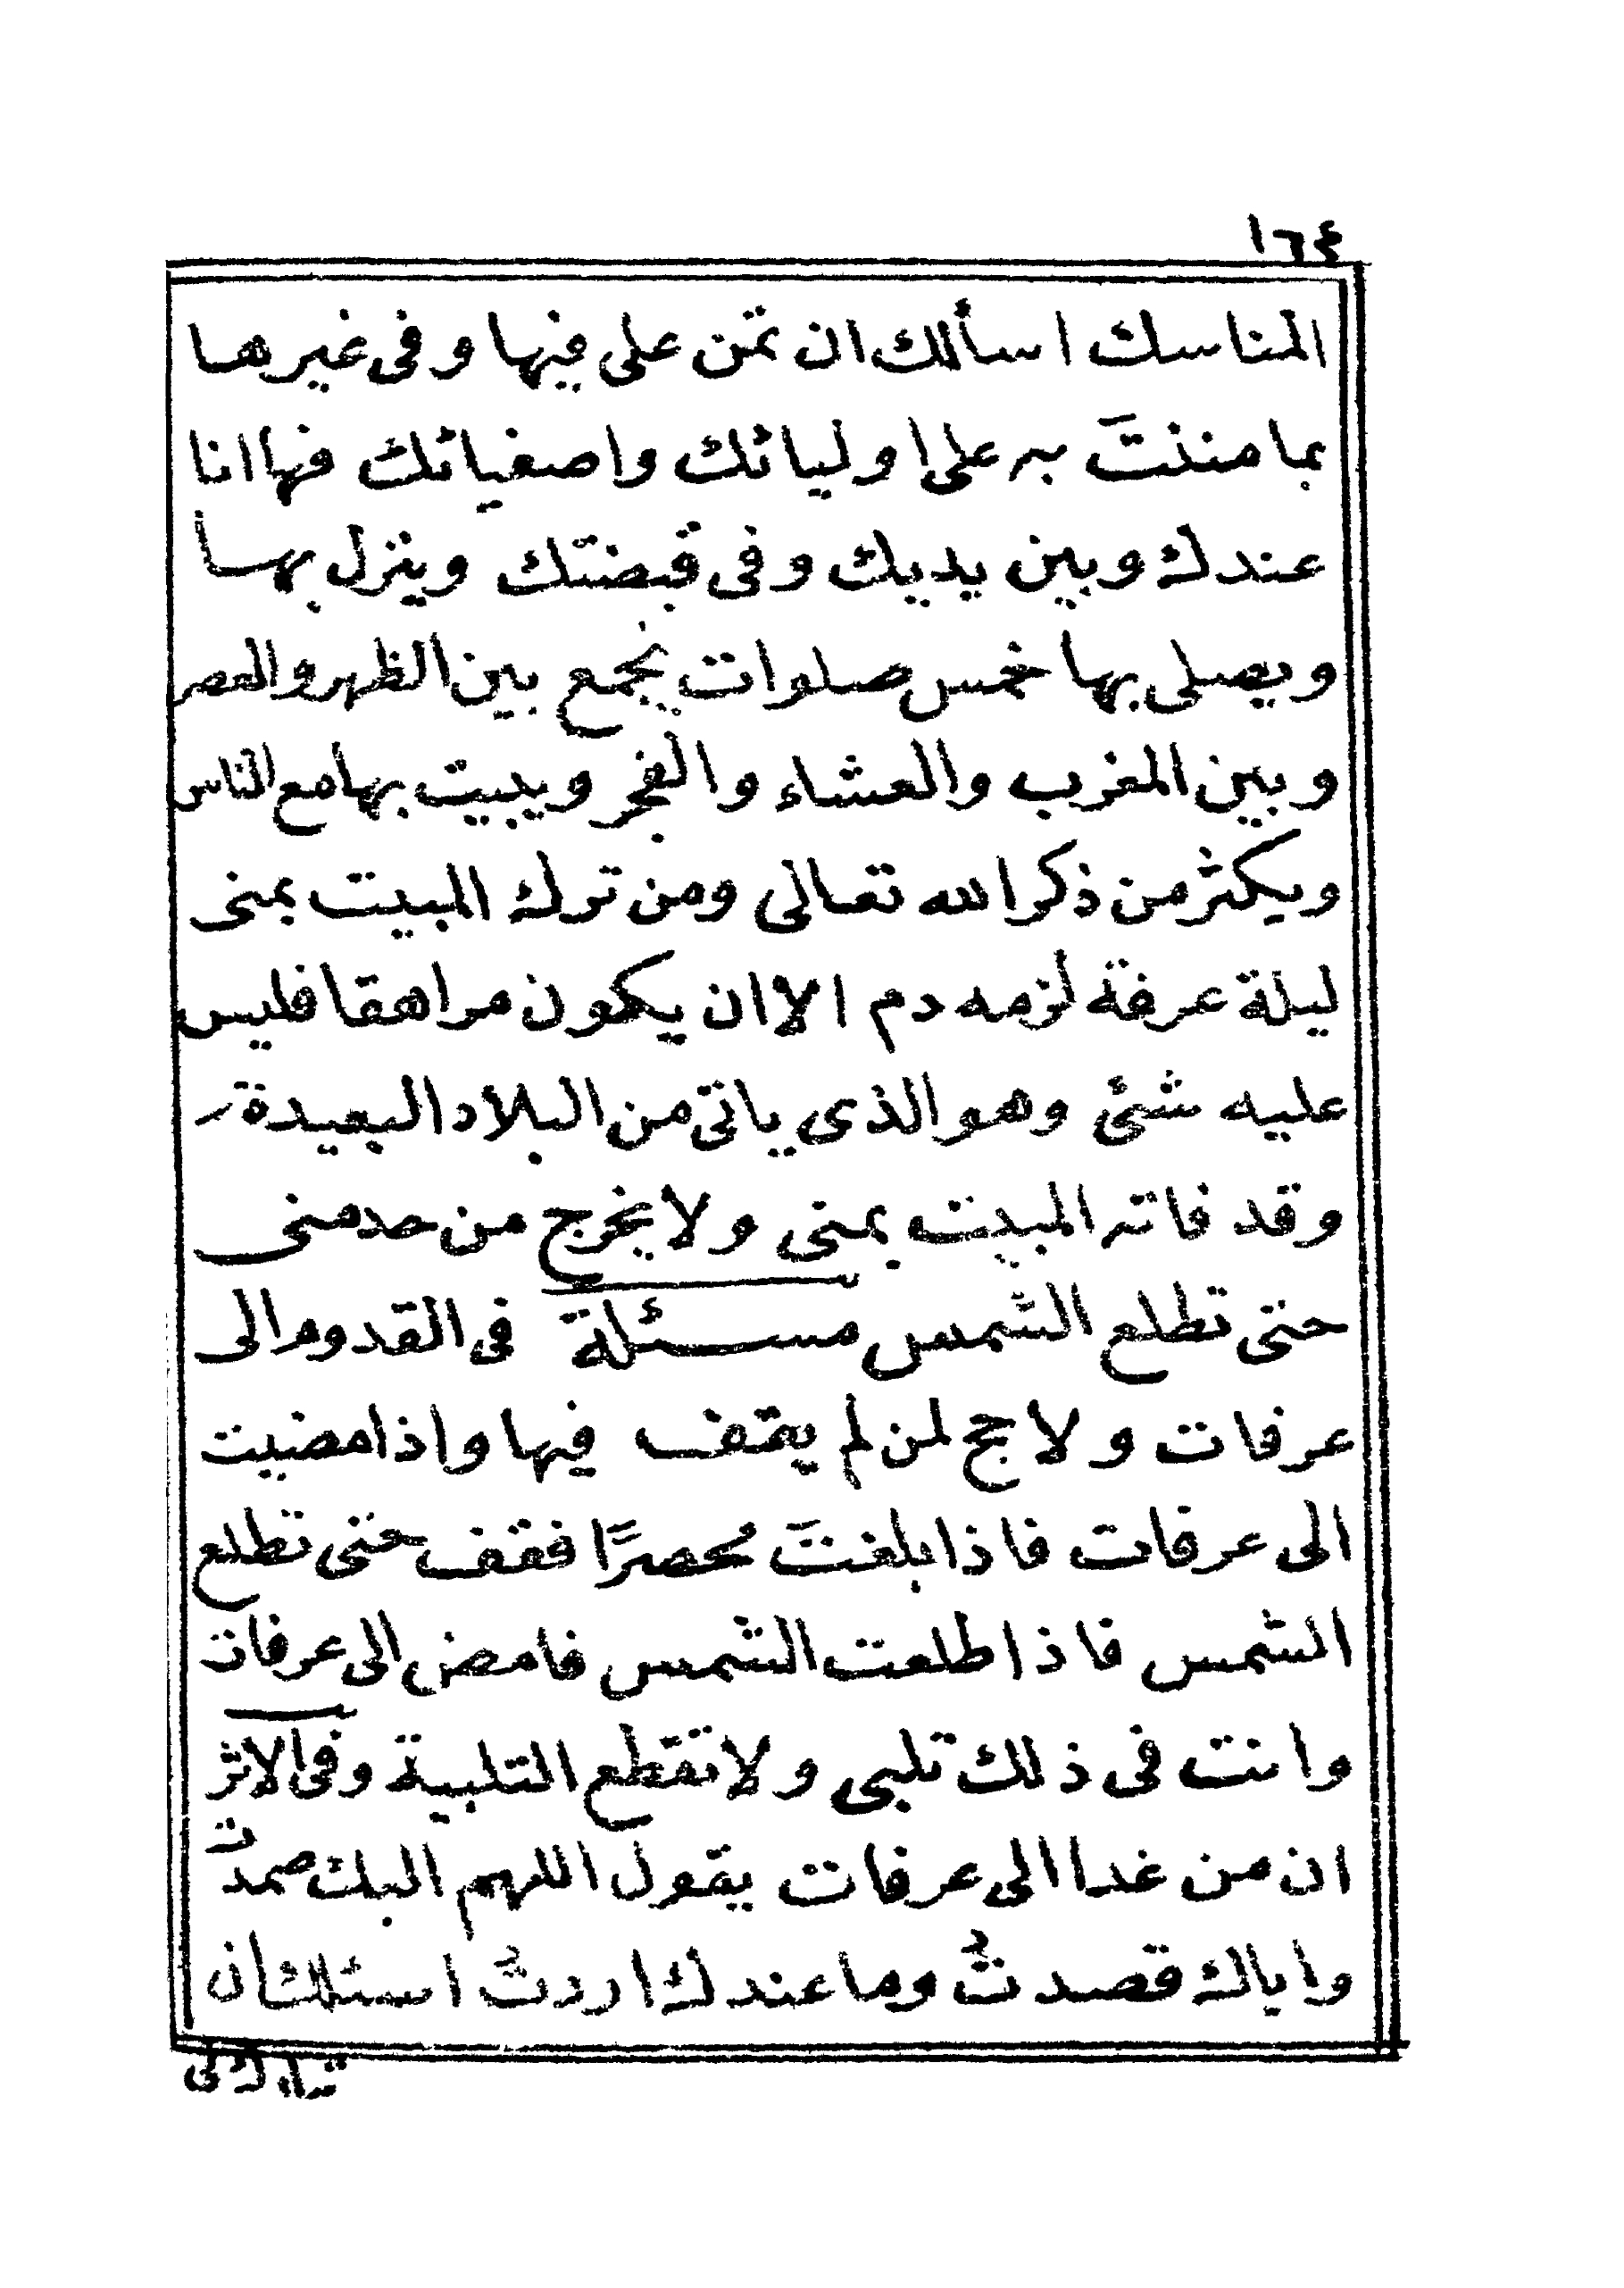 ١٦٤
المناسك اسألك ان تمن على فيها وفى غيرها
بما مننتَ به على اوليائك واصفيائك فها انا
عندك وبين يديك وفى قبضتك وينزل بها
ويصلى بها خمس صلوات يجمع بين الظهر والعصر
وبين المغرب والعشاء والفجر ويبيت بها مع الناس
ويكثر من ذكر الله تعالى ومن ترك المبيت بمنى
ليلة عرفة لزمه دم الا ان يكون مراهقا فليس
عليه شئ وهو الذى ياتى من البلاد البعيدة
وقد فاته المبيت بمنى ولا يخرج من حد منى
حتى تطلع الشمس مسئلة فى القدوم الى
عرفات ولا حج لمن لم يقف فيها واذا مضيت
الى عرفات فاذا بلغتَ محصرًا فقف حتى تطلع
الشمس فاذا طلعت الشمس فامض الى عرفات
وانت فى ذلك تلبى ولا تقطع التلبية وفى الاثر
ان من غدا الى عرفات يقول اللهم اليك صمدت
واياك قصدتُ وما عندك اردتُ اسئلك ان
تبارك لى